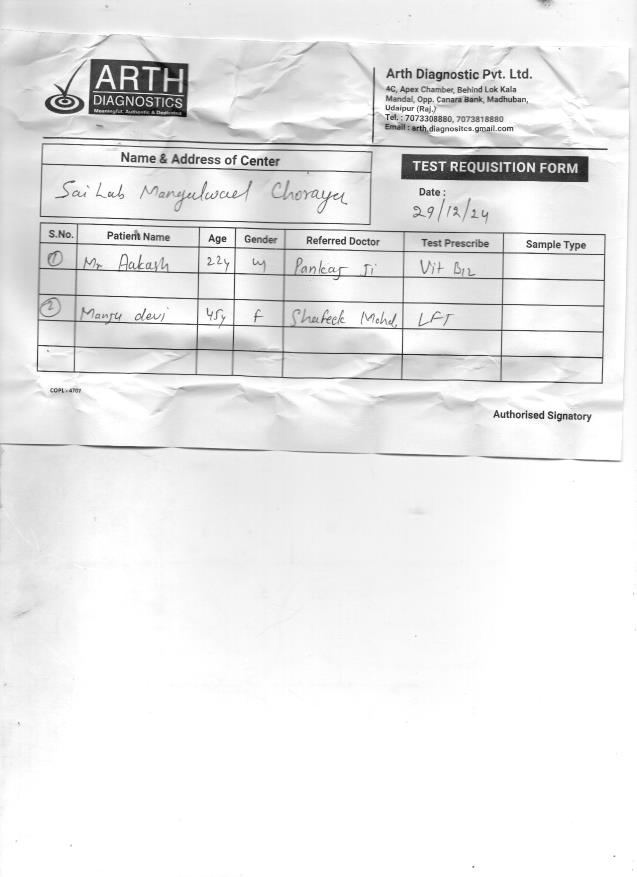 ARTH
DIAGNOSTICS
Meaningful, Authentic & Dedicated
Arth Diagnostic Pvt. Ltd.
4C, Apex Chamber, Behind Lok Kala
Mandal, Opp. Canara Bank, Madhuban,
Udaipur (Raj.)
Tel. : 7073308880, 7073818880
Email : arth.diagnositcs.gmail.com
Name & Address of Center
Sai Lab
TEST REQUISITION FORM
Date :
29/12/24
S.No. Patient Name Age Gender Referred Doctor Test Prescribe Sample Type
1 Mr Aakash 22y M Pankaj Ji Vit B12
2 Manju devi 45y F Mohd. LFT
COPL - 4707
Authorised Signatory